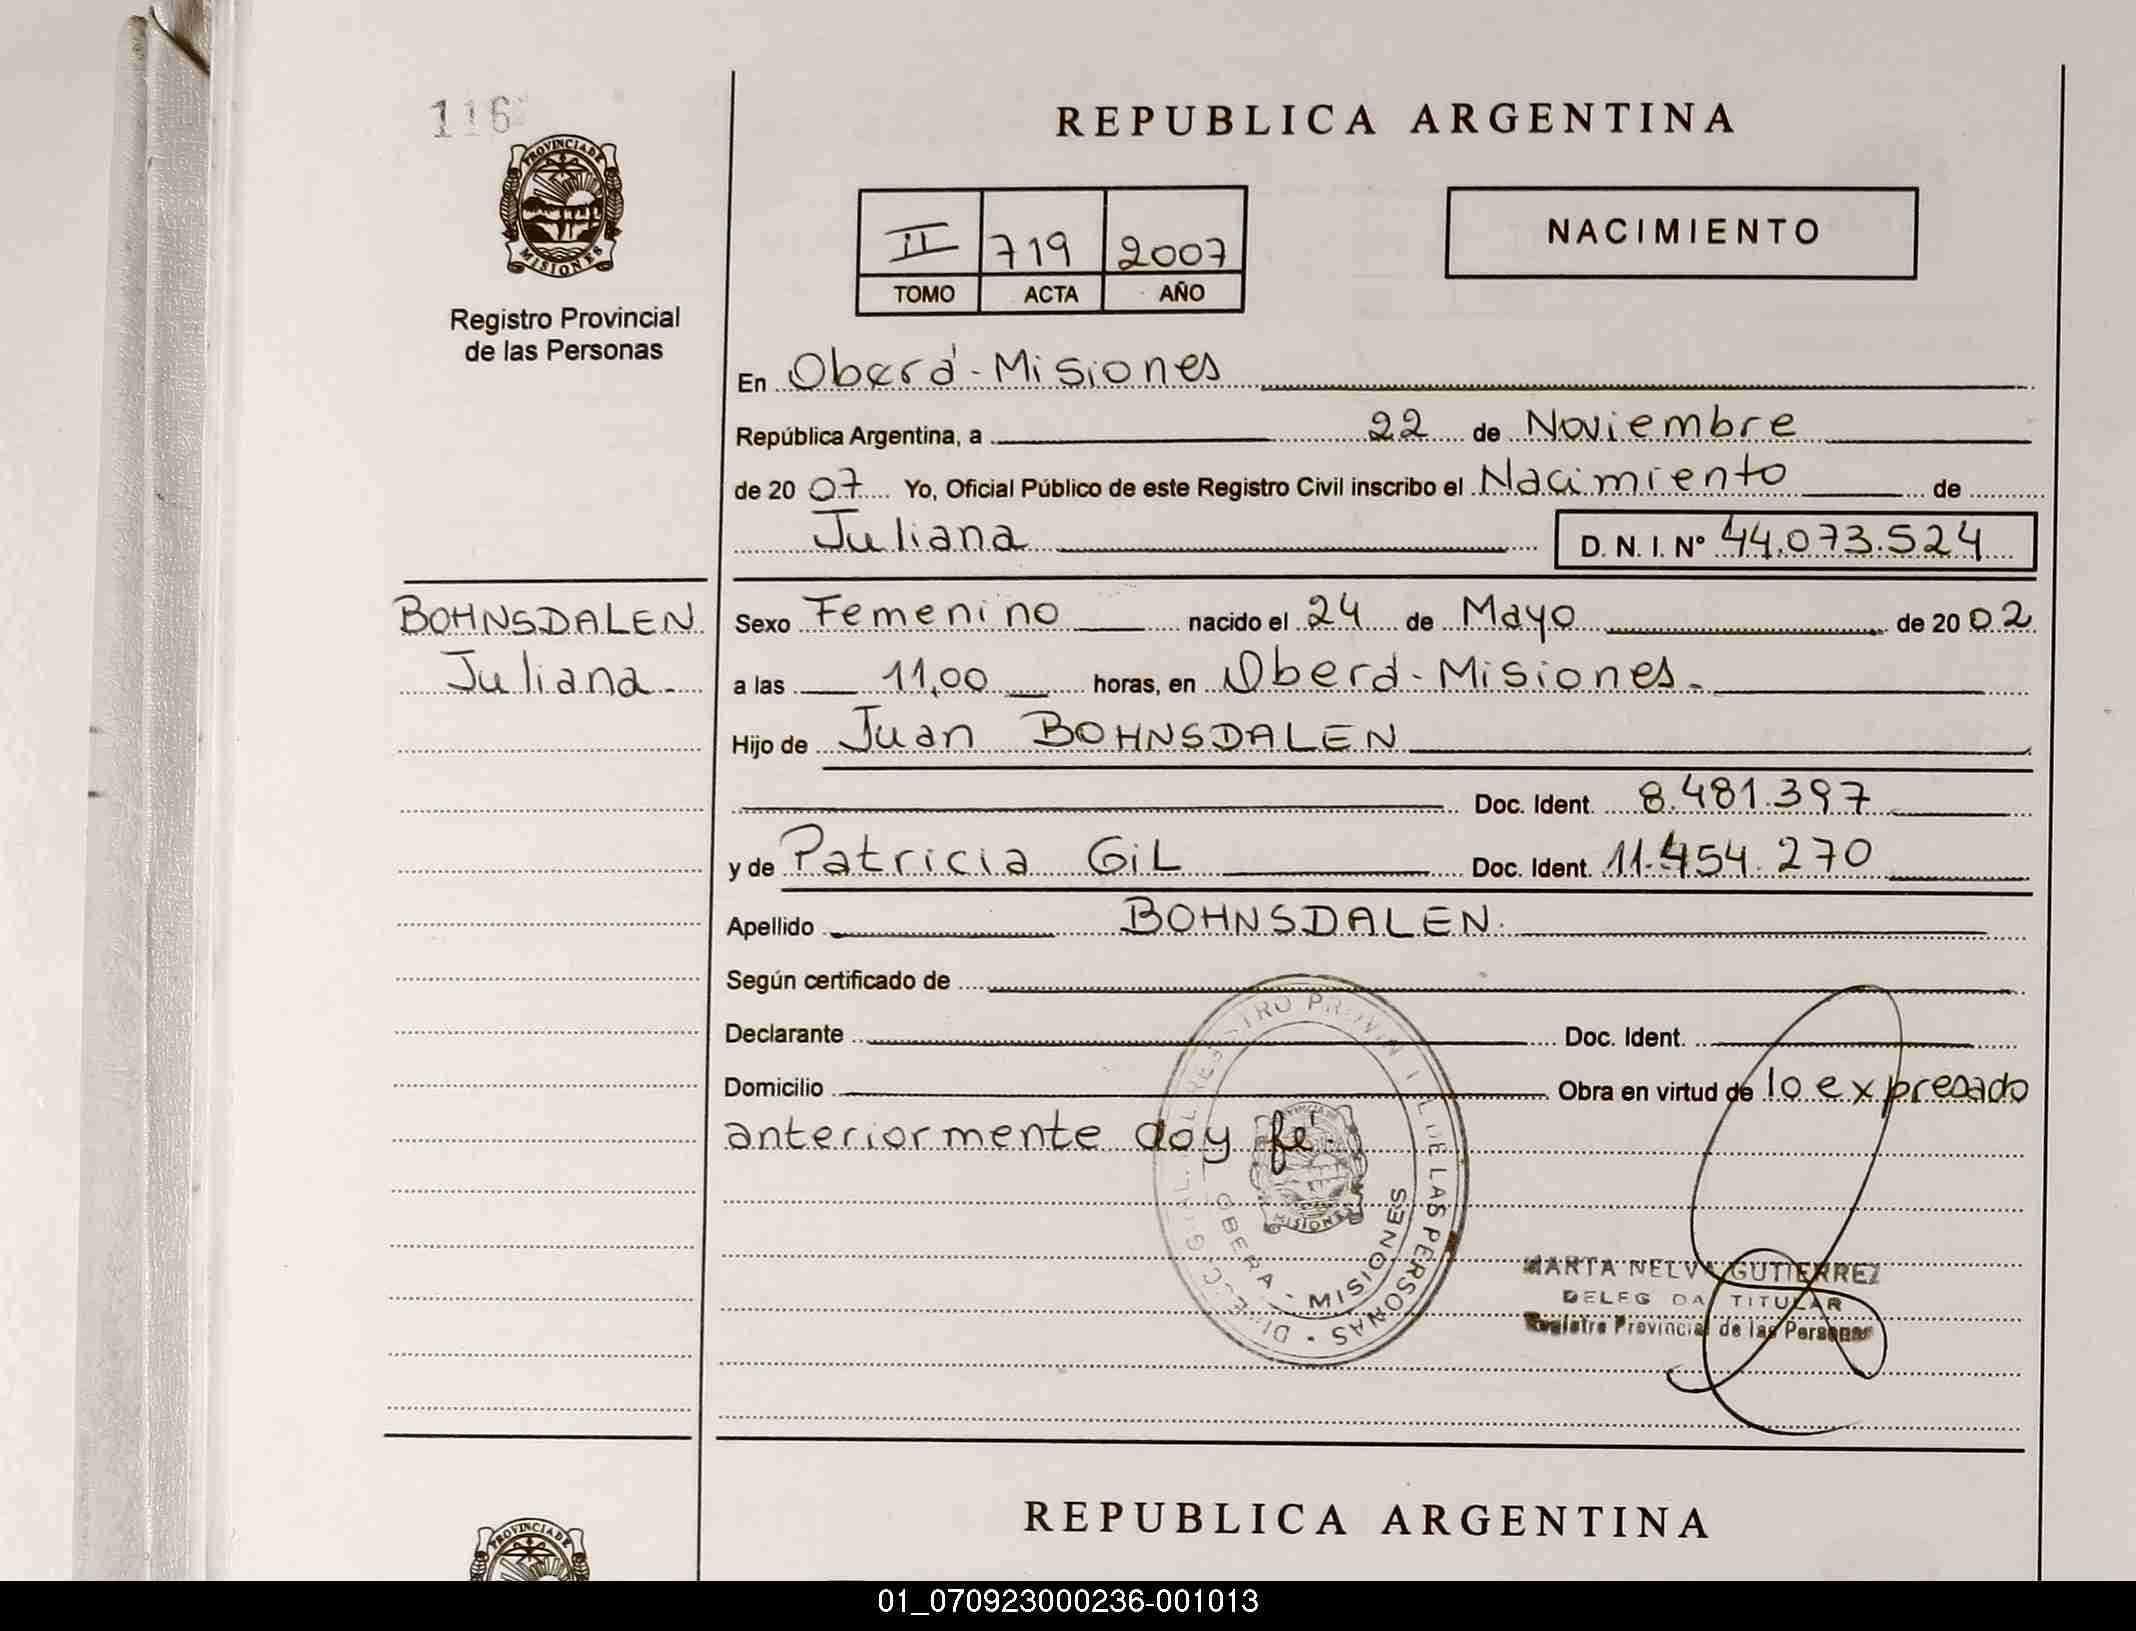 116
PROVINCIA DE
MISIONES
Registro Provincial
de las Personas
REPUBLICA ARGENTINA
II 719 2007
TOMO ACTA AÑO
NACIMIENTO
En Oberá - Misiones
República Argentina, a 22 de Noviembre
de 2007 Yo, Oficial Público de este Registro Civil inscribo el Nacimiento de
Juliana D. N. I. Nº 44.073.524
BOHNSDALEN
Juliana.-
Sexo Femenino nacido el 24 de Mayo de 2002
a las 11,00 horas, en Oberá - Misiones.-
Hijo de Juan BOHNSDALEN
Doc. Ident. 8.481.397
y de Patricia GiL Doc. Ident. 11.454.270
Apellido BOHNSDALEN.
Según certificado de
Declarante Doc. Ident.
Domicilio Obra en virtud de lo expresado
anteriormente doy fé.
REGISTRO PROVINCIAL DE LAS PERSONAS
OBERA - MISIONES
MISIONES
MARTA NELVA GUTIERREZ
DELEGADA TITULAR
Registro Provincial de las Personas
REPUBLICA ARGENTINA
PROVINCIA DE
01_070923000236-001013